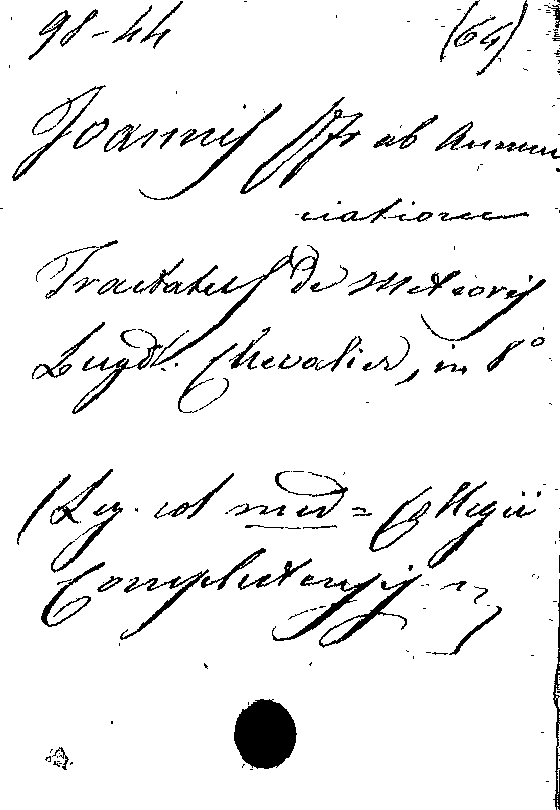 98-44 (64)
Joannis Fr ab Annun
ciatione
Tractatus de Meteoris
Lugd. Chevalier, in 8º
(Ley. col mend = Collegii
Complutensis